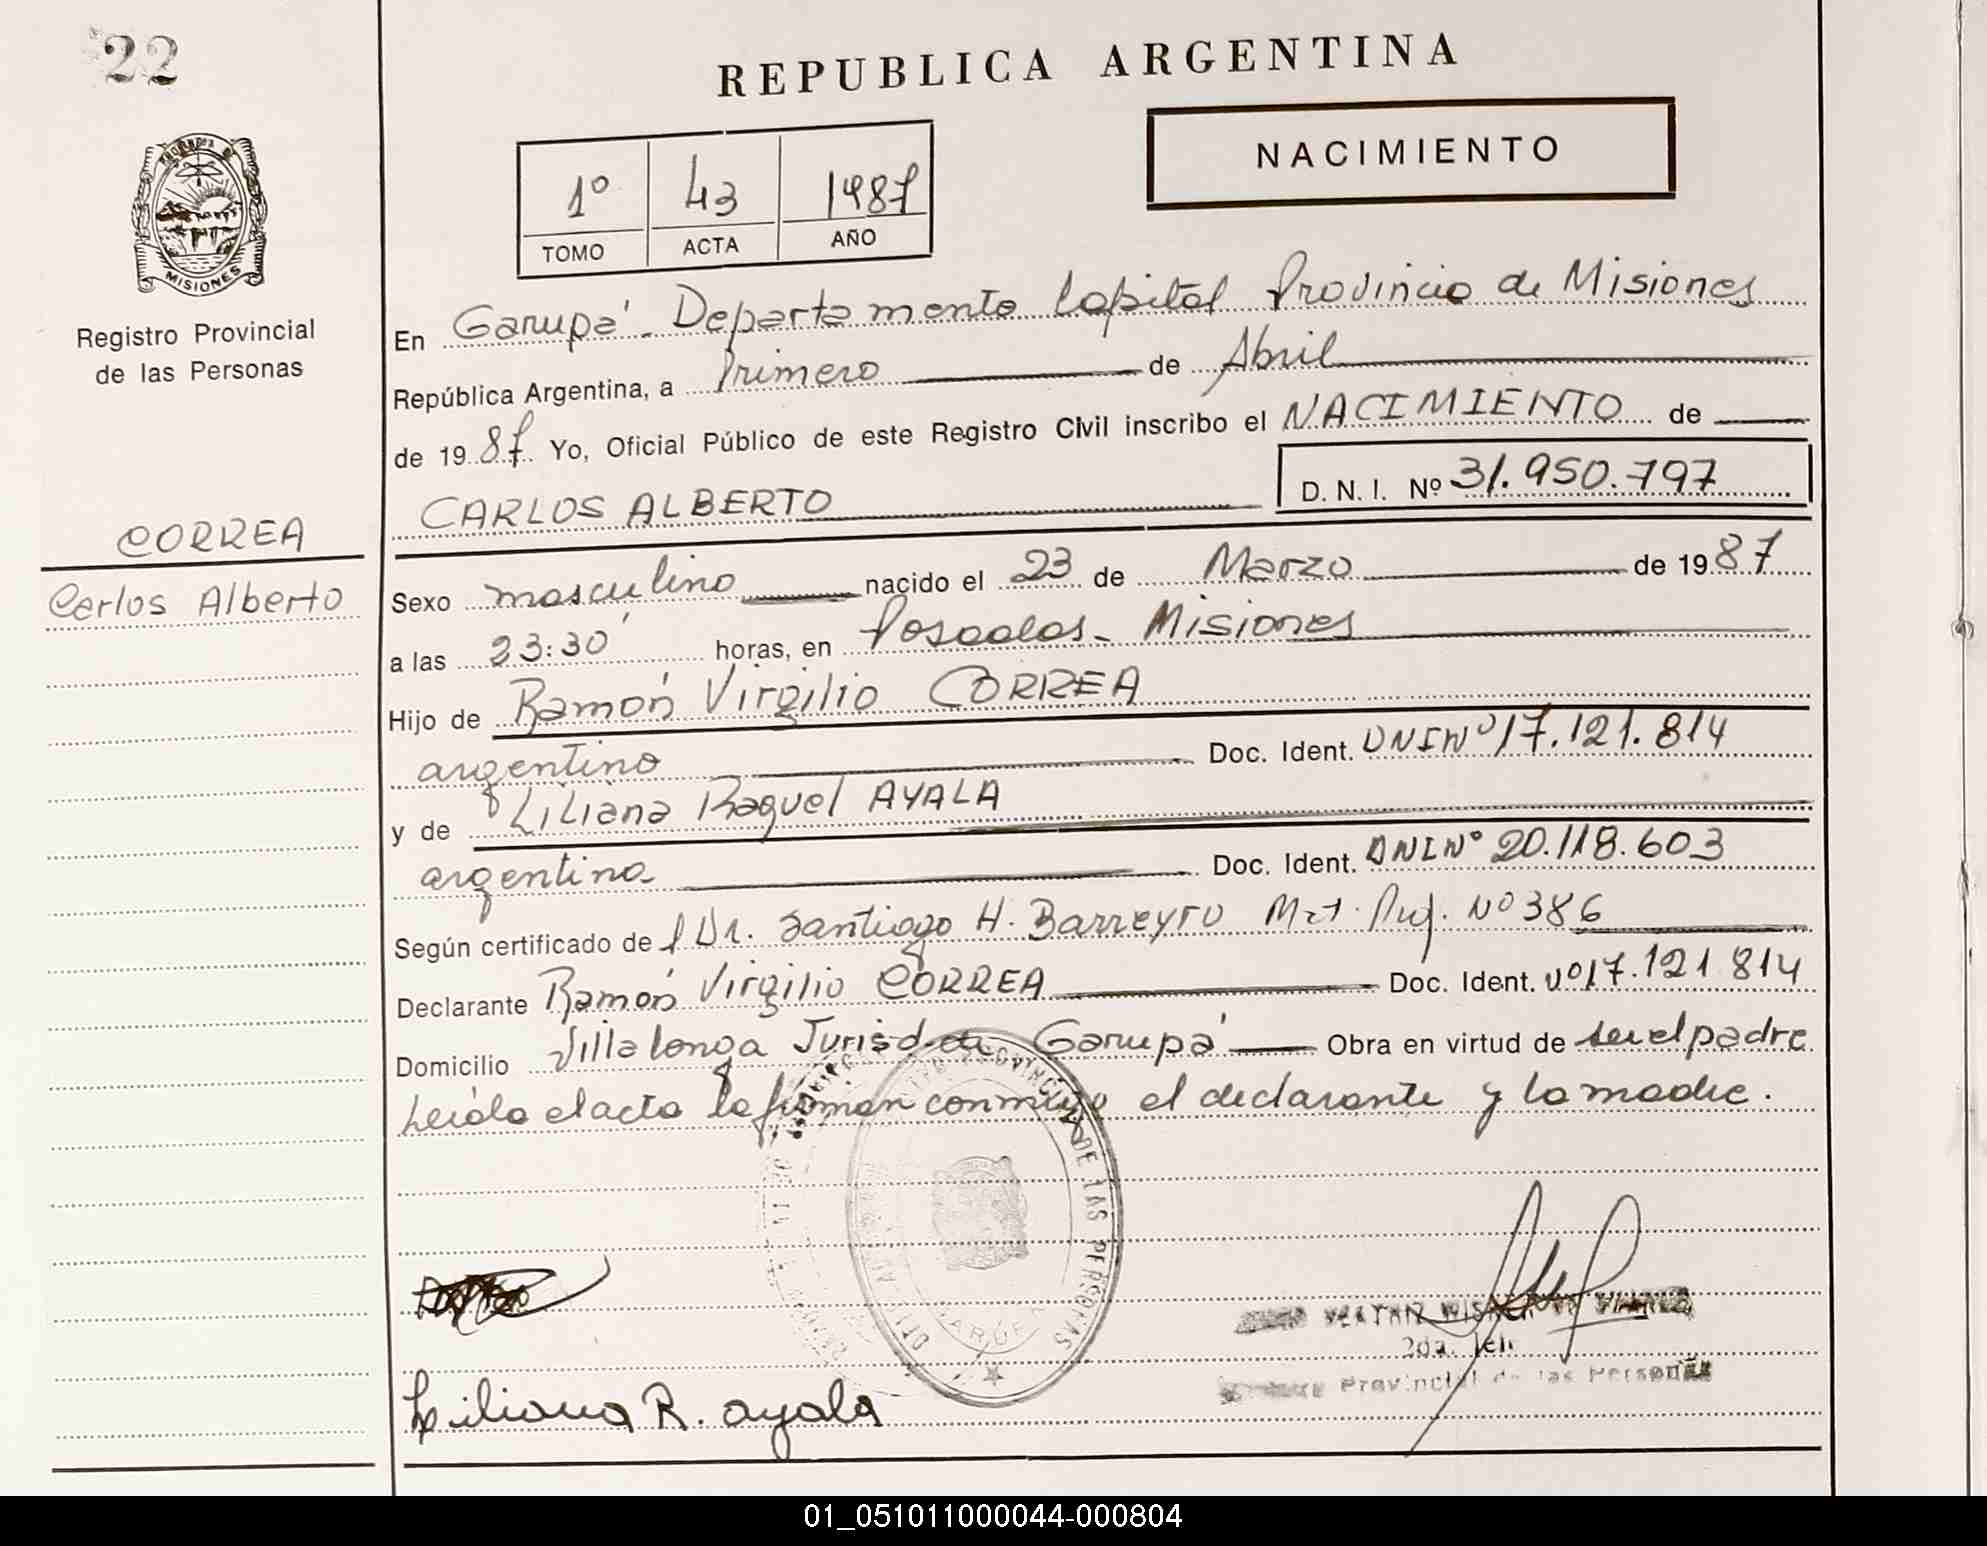 22
REPUBLICA ARGENTINA
NACIMIENTO
1º 43 1987
TOMO ACTA AÑO
MISIONES
Registro Provincial
de las Personas
CORREA
Carlos Alberto
En Garupá - Departamento Capital Provincia de Misiones
República Argentina, a Primero de Abril
de 1987 Yo, Oficial Público de este Registro Civil inscribo el NACIMIENTO de
CARLOS ALBERTO D. N. I. Nº 31.950.797
Sexo masculino nacido el 23 de Marzo de 1987
a las 23:30 horas, en Posadas - Misiones
Hijo de Ramón Virgilio CORREA
argentino Doc. Ident. DNI Nº 17.121.814
y de Liliana Raquel AYALA
argentina Doc. Ident. DNI Nº 20.118.603
Según certificado de Dr. Santiago H. Barreyro Mat. Nº 386
Declarante Ramón Virgilio CORREA Doc. Ident. Nº 17.121 814
Domicilio Villalonga Jurisd. de Garupá Obra en virtud de ser el padre
Leída el acta la firman conmigo el declarante y la madre.
PROVINCIAL DE LAS PERSONAS
Liliana R. ayala
2da. Jefe
Provincial de las Personas
01_051011000044-000804